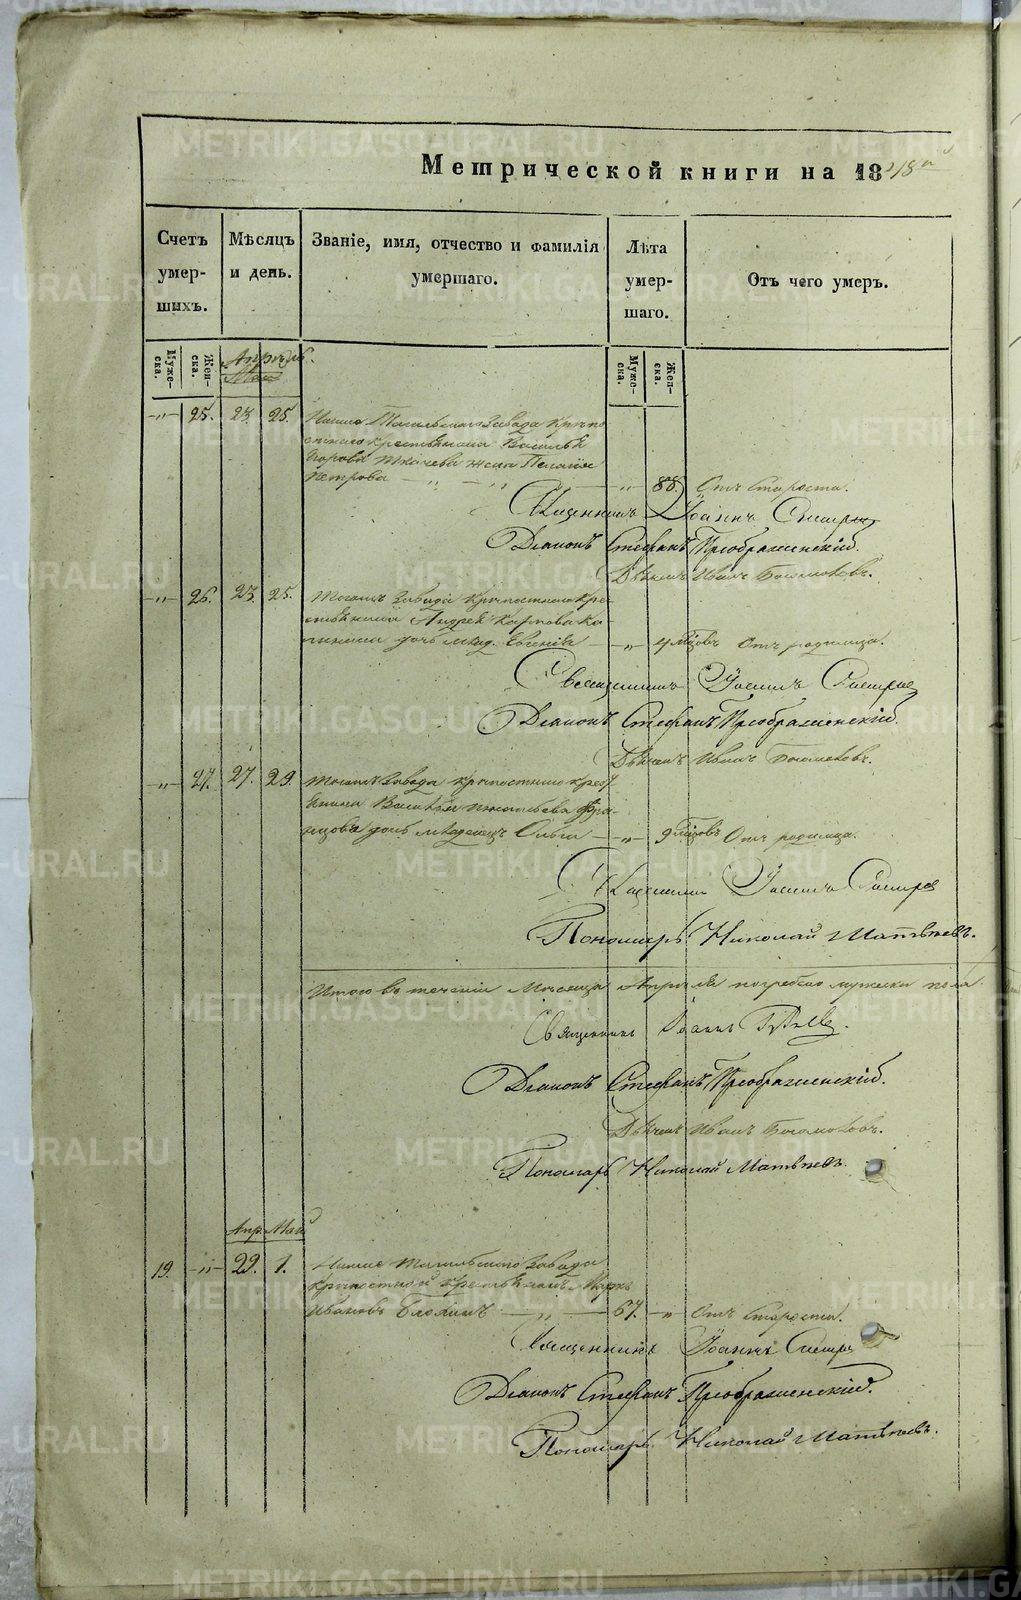 Метрической книги на 18
Счетъ умер- шихъ.
Мѣсяцъ и день.
Званіе, имя, отчество и фамилія умершаго.
Лѣта умер- шаго.
Отъ чего умеръ.
Муже- ска.
Жен- ска.
Апрѣль.
Май
Муже- ска.
Жен- ска.
25. 23. 25. Нижне Тагильскаго Завода крѣпо
стнаго крестьянина Василья
Ткачева жена Пелагія
Петрова 88. Отъ старости.
Священникъ Іоаннъ
Діаконъ Стефанъ Преображенскій.
Дьячекъ Иванъ Богомоловъ.
26. 23. 25. Тогожъ Завода крѣпостнаго кре
стьянина Андрея Карпова
дочь млад. Евгенія 4 мѣсяцовъ Отъ родимца.
Священникъ Іоаннъ
Діаконъ Стефанъ Преображенскій.
Дьячекъ Иванъ Богомоловъ.
27. 27. 29. Тогожъ Завода крѣпостнаго крест
янина Василья
дочь младенецъ Ольга 9 мѣсяцовъ Отъ родимца.
Священникъ Іоаннъ
Пономарь Николай Матвѣевъ.
Итого въ теченіи Мѣсяца Апрѣля погребено мужска пола
Священникъ Іоаннъ
Діаконъ Стефанъ Преображенскій.
Дьячекъ Иванъ Богомоловъ.
Пономарь Николай Матвѣевъ.
Апр. Май
19. 29. 1. Нижне Тагильскаго Завода
крѣпостной крестьянинъ Маркъ
Ивановъ Блохинъ 67. Отъ старости.
Священникъ Іоаннъ
Діаконъ Стефанъ Преображенскій.
Пономарь Николай Матвѣевъ.
METRIKI.GASO-URAL.RU